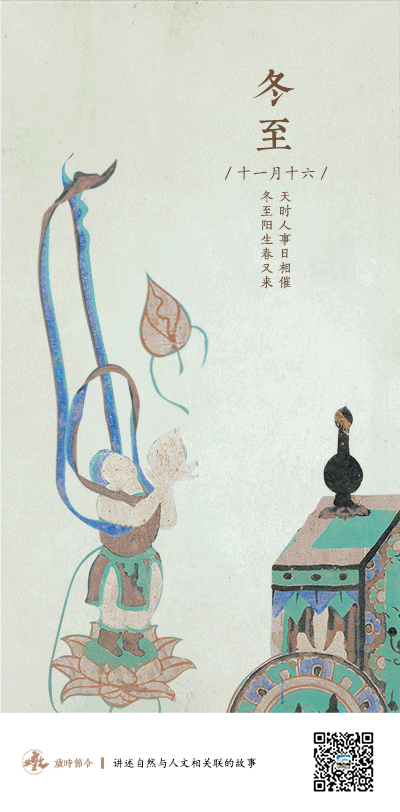 冬至
/十一月十六/
天时人事日相催
冬至阳生春又来
歲時節令
讲述自然与人文相关联的故事